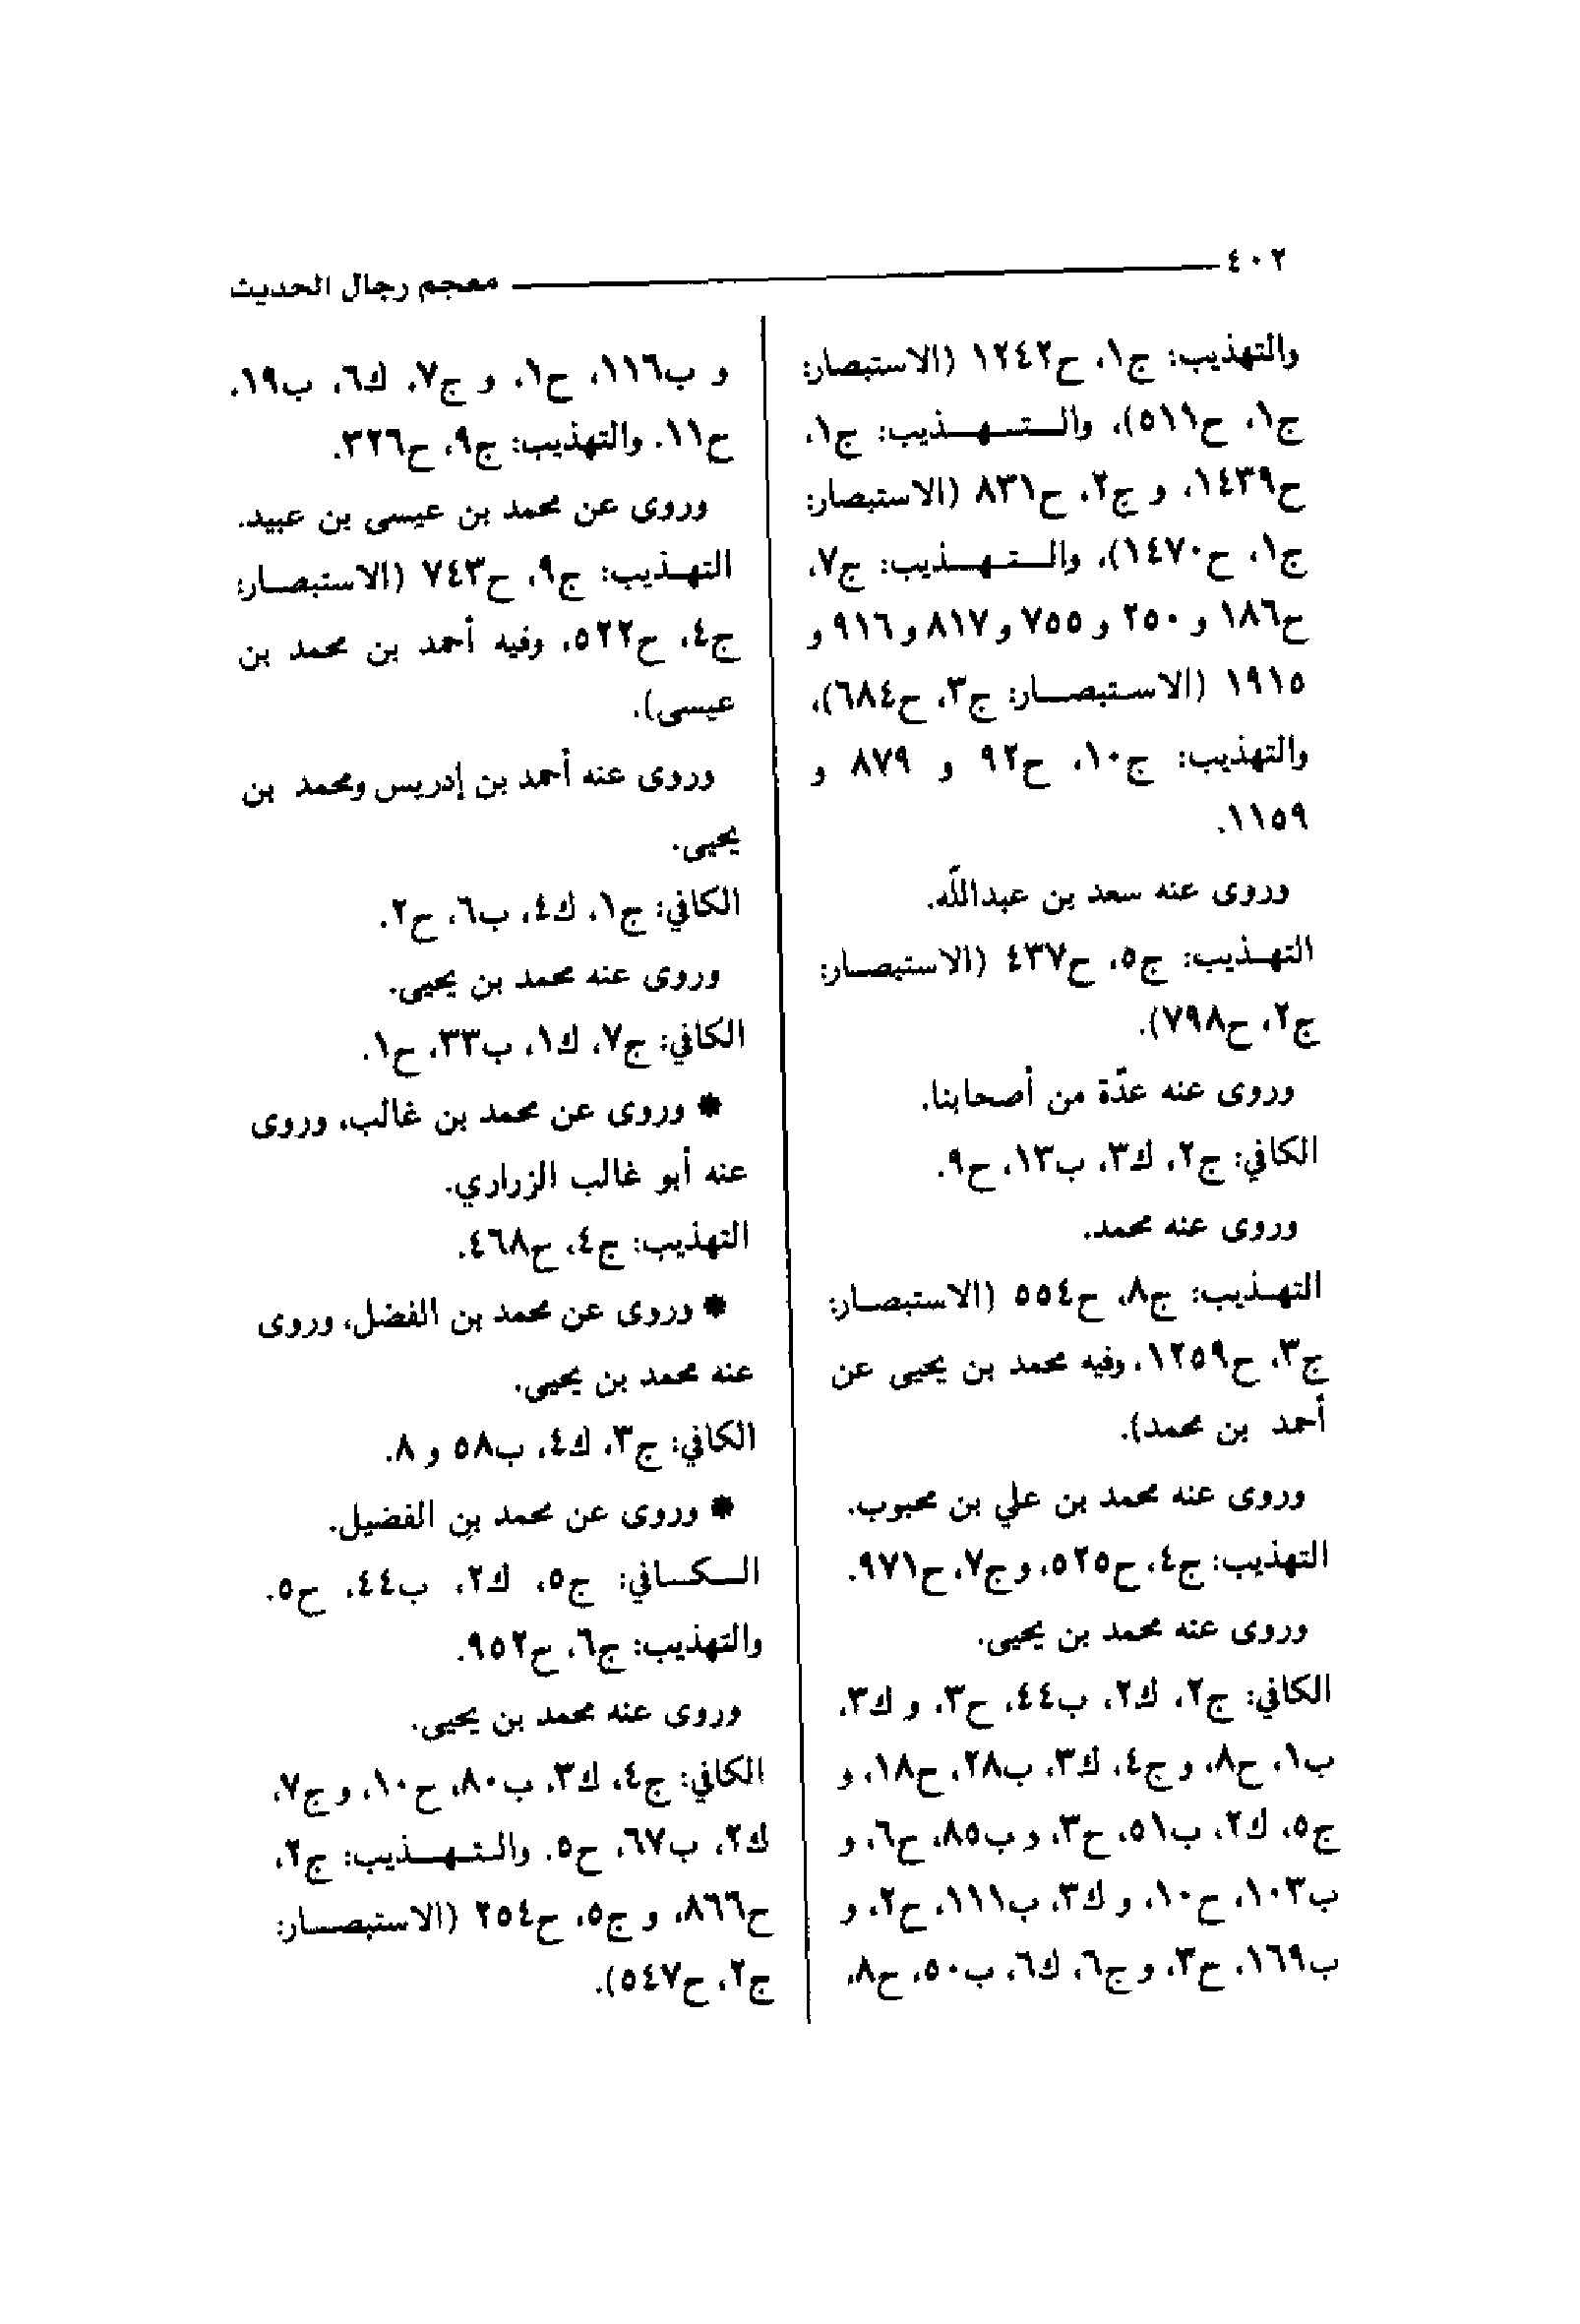 ٤٠٢ معجم رجال الحديث
والتهذيب: ج١، ح١٢٤٢ (الاستبصار:
ج١، ح٥١١)، والتهذيب: ج١،
ح١٤٣٩، و ج٢، ح٨٣١ (الاستبصار:
ج١، ح١٤٧٠)، والتهذيب: ج٧،
ح١٨٦ و ٢٥٠ و ٧٥٥ و ٨١٧ و ٩١٦ و
١٩١٥ (الاستبصار: ج٣، ح٦٨٤)،
والتهذيب: ج١٠، ح٩٢ و ٨٧٩ و
١١٥٩.
وروى عنه سعد بن عبدالله.
التهذيب: ج٥، ح٤٣٧ (الاستبصار:
ج٢، ح٧٩٨).
وروى عنه عدّة من أصحابنا.
الكافي: ج٢، ك٣، ب١٣، ح٩.
وروى عنه محمد.
التهذيب: ج٨، ح٥٥٤ (الاستبصار:
ج٣، ح١٢٥٩، وفيه محمد بن يحيى عن
أحمد بن محمد).
وروى عنه محمد بن علي بن محبوب.
التهذيب: ج٤، ح٥٢٥، و ج٧، ح٩٧١.
وروى عنه محمد بن يحيى.
الكافي: ج٢، ك٢، ب٤٤، ح٣، و ك٣،
ب١، ح٨، و ج٤، ك٣، ب٢٨، ح١٨، و
ج٥، ك٢، ب٥١، ح٣، و ب٨٥، ح٦، و
ب١٠٣، ح١٠، و ك٣، ب١١١، ح٢، و
ب١٦٩، ح٣، و ج٦، ك٦، ب٥٠، ح٨،
و ب١١٦، ح١، و ج٧، ك٦، ب١٩،
ح١١. والتهذيب: ج٩، ح٣٢٦.
وروى عن محمد بن عيسى بن عبيد.
التهذيب: ج٩، ح٧٤٣ (الاستبصار:
ج٤، ح٥٢٢، وفيه أحمد بن محمد بن
عيسى).
وروى عنه أحمد بن إدريس ومحمد بن
يحيى.
الكافي: ج١، ك٤، ب٦، ح٢.
وروى عنه محمد بن يحيى.
الكافي: ج٧، ك١، ب٣٣، ح١.
* وروى عن محمد بن غالب، وروى
عنه أبو غالب الزراري.
التهذيب: ج٤، ح٤٦٨.
* وروى عن محمد بن الفضل، وروى
عنه محمد بن يحيى.
الكافي: ج٣، ك٤، ب٥٨ و ٨.
* وروى عن محمد بن الفضيل.
الكافي: ج٥، ك٢، ب٤٤، ح٥.
والتهذيب: ج٦، ح٩٥٢.
وروى عنه محمد بن يحيى.
الكافي: ج٤، ك٣، ب٨٠، ح١٠، و ج٧،
ك٢، ب٦٧، ح٥. والتهذيب: ج٢،
ح٨٦٦، و ج٥، ح٢٥٤ (الاستبصار:
ج٢، ح٥٤٧).